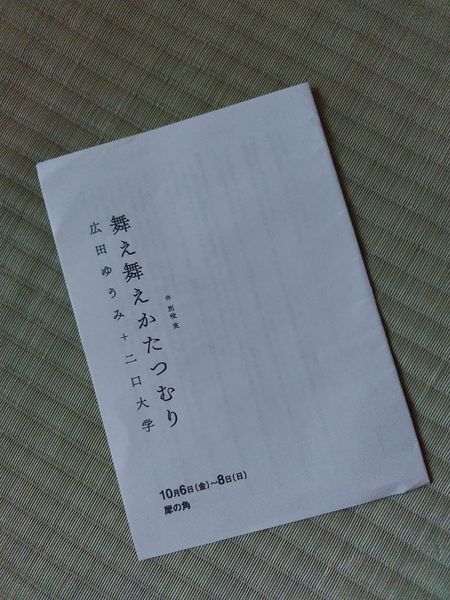 舞え舞えかたつむり
作 別役実
広田ゆうみ+二口大学
10月6日(金)~8日(日)
犀の角